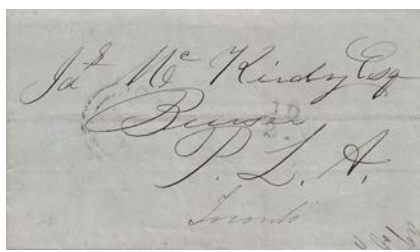 Jas Mc Kirdy Esq
Bursar
P. L. A.
Toronto